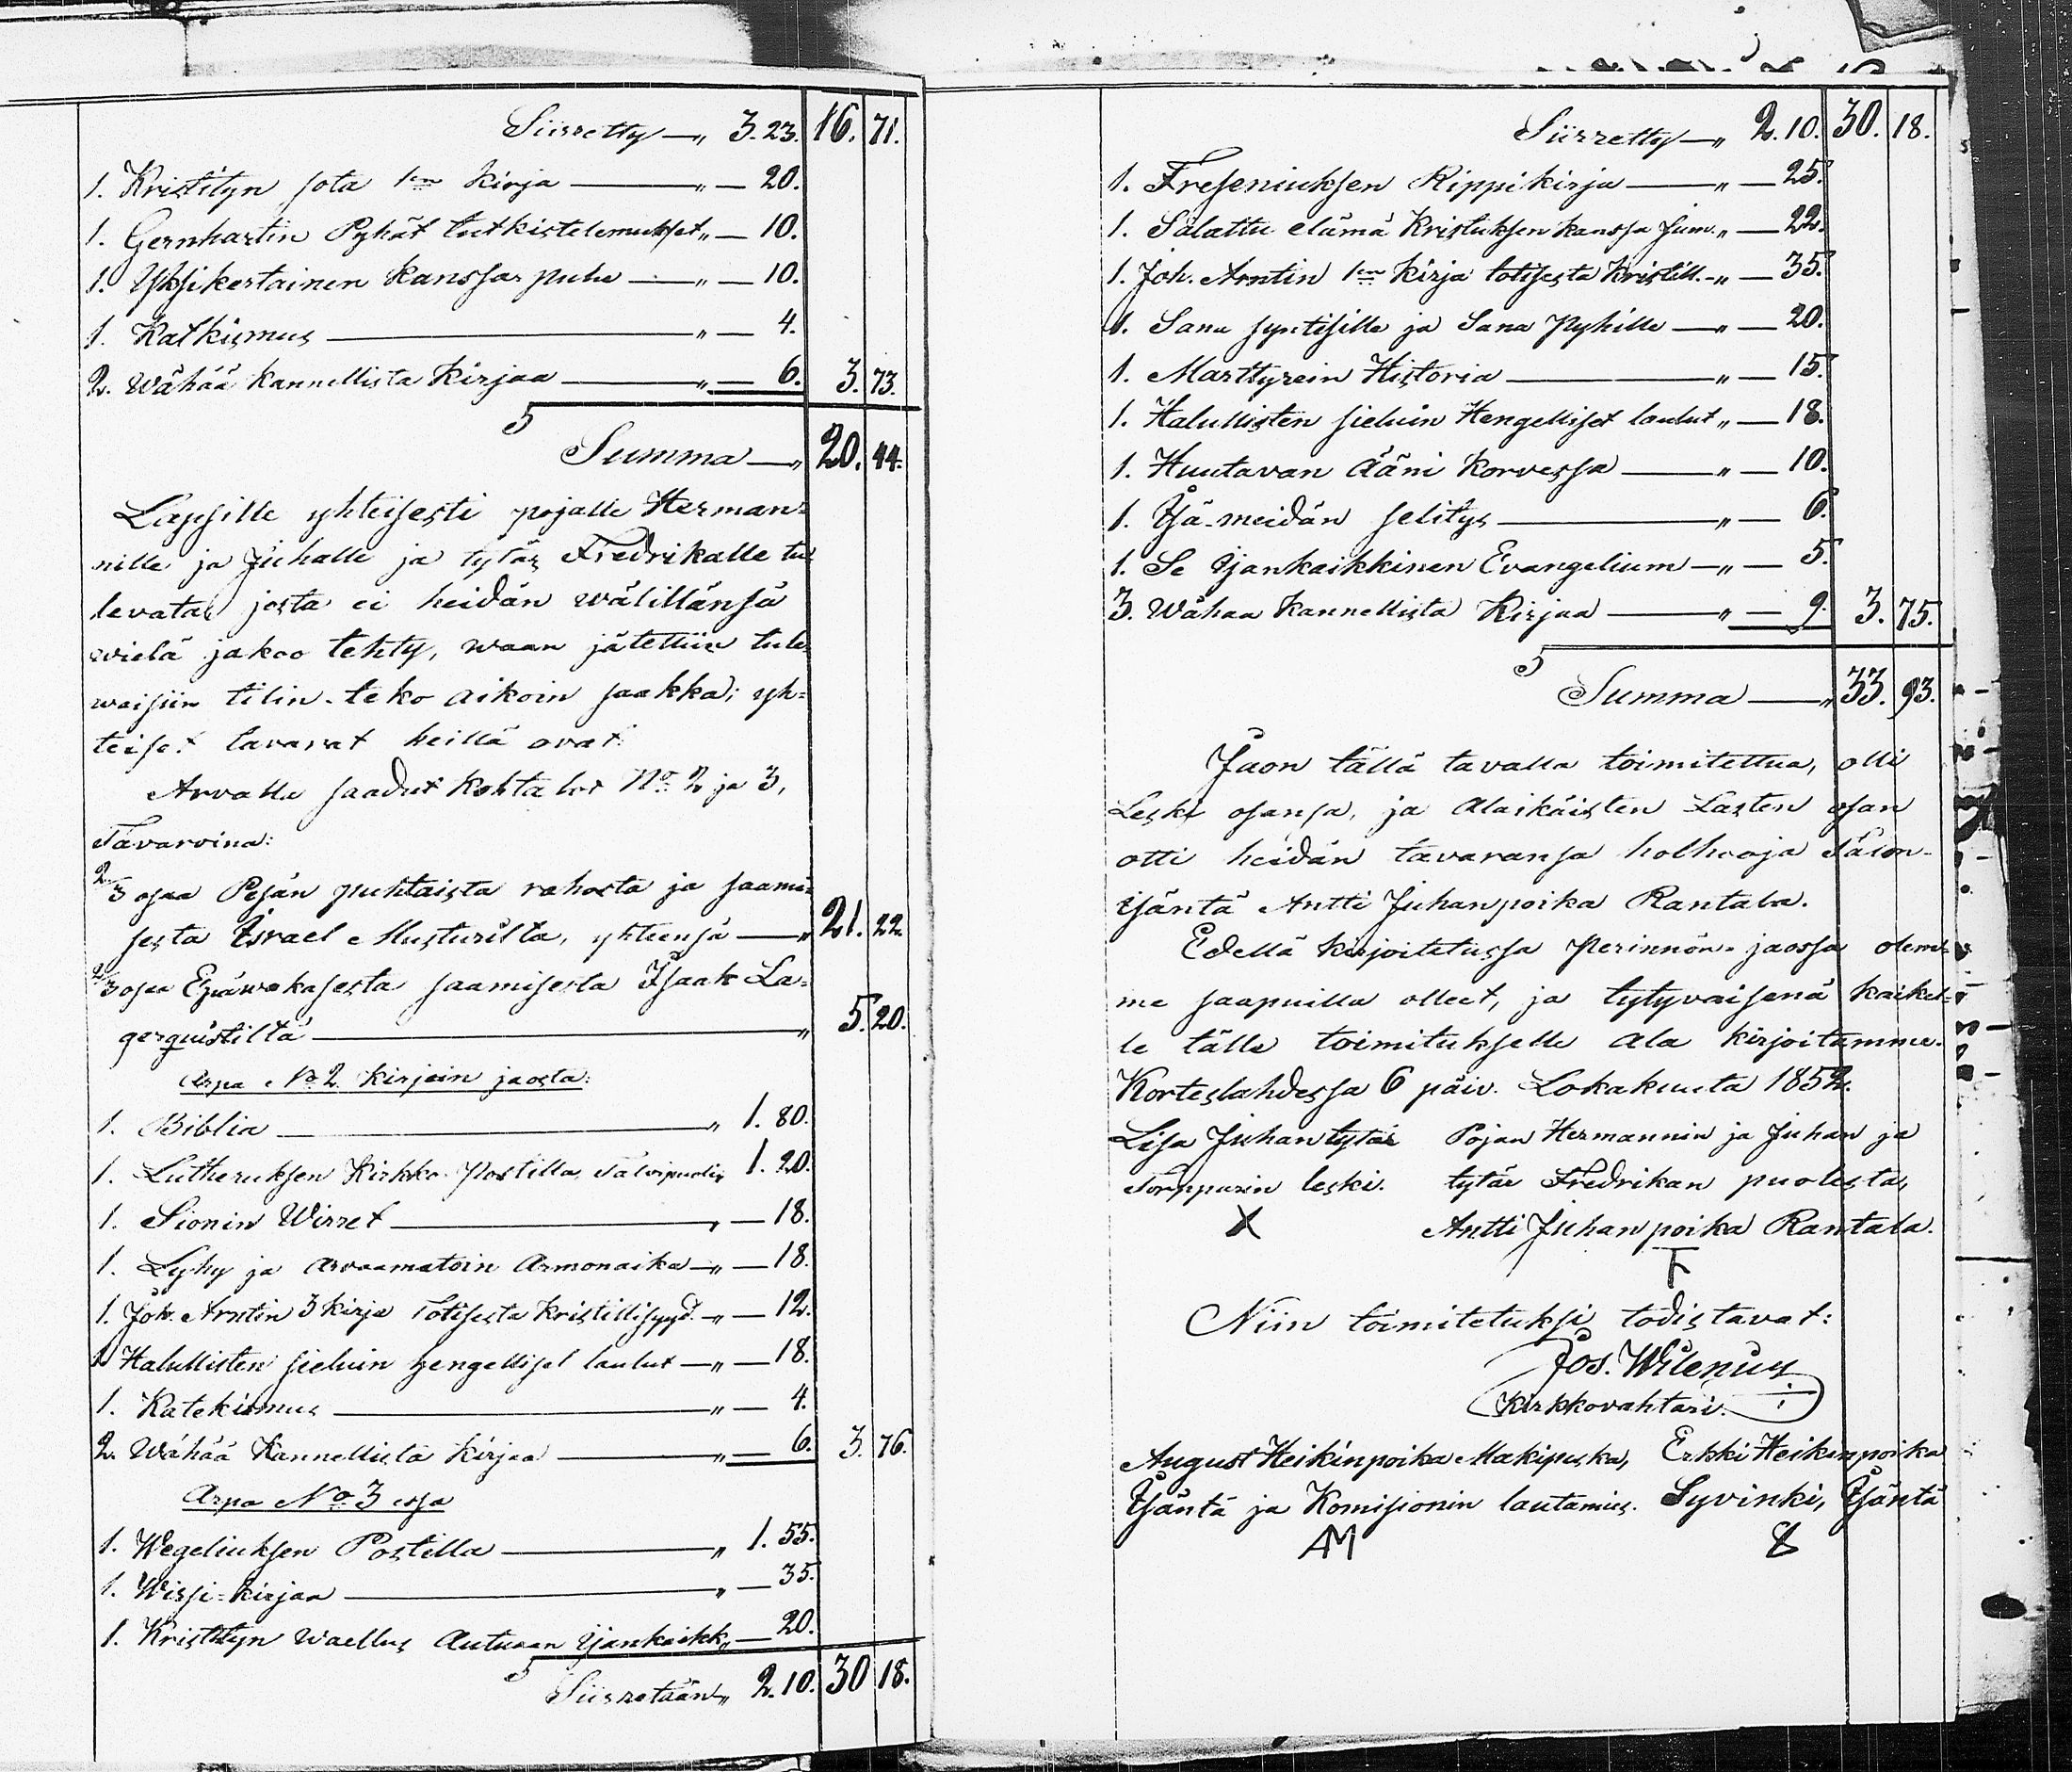 Siirretty — „ 3. 23. 16. 71.
1. Kristityn sota 1en kirja — „ — 20.
1. Gernhartin Pyhät tutkistelemukset „ — 10.
1. Yksikertainen kanssa puhe — „ — 10.
1. Katkismus — „ — 4.
2. Wähää kannellista kirjaa — „ — 6. 3. 73.
Summa — „ 20. 44.
Lapsille yhteisesti pojalle Herman-
nille ja Juhalle ja tytär Fredrikalle tu-
levata, josta ei heidän wälillänsä
wielä jakoo tehty, waan jätettiin tule-
waisiin tilin-teko aikoin saakka; yh-
teiset tavarat heillä ovat:
Arvalla saadut kohtalot No. 2 ja 3,
Tavaroina:
2/3 osaa Pesän puhtaista rahosta ja saami-
sesta Israel Musturilta, yhteensä — „ 21. 22.
2/3 osaa Epäwakasesta saamisesta Isaak La-
gerquistilta — „ 5. 20.
Arpa No 2 kirjain jaosta:
1. Biblia — „ 1. 80.
1. Lutheruksen Kirkko-Postilla, Talvipuoli „ 1. 20.
1. Sionin Wirret — „ — 18.
1. Lyhy ja arvaamatoin Armonaika — „ — 18.
1. Joh. Arntin 3 kirja Totisesta kristillisyyd. — „ — 12.
1. Halullisten sieluin hengelliset laulut — „ — 18.
1. Katekismus — „ — 4.
2. Wähää kannellista kirjaa — „ — 6. 3. 76.
Arpa No 3 ossa
1. Wegeliuksen Postilla — „ 1. 55.
1. Wirsi-kirjaa — „ — 35.
1. Kristityn waellus Autuaan ijankaikk „ — 20.
Siirretään „ 2. 10. 30 18.
Siirretty — „ 2. 10. 30. 18.
1. Freseniuksen Rippikirja — „ — 25.
1. Salattu elämä Kristuksen kanssa Jum. „ — 22.
1. Joh. Arntin 1en kirja totisesta kristill. — „ — 35.
1. Sana syntisille ja Sana Pyhille — „ — 20.
1. Marttyrein Historia — „ — 15.
1. Halullisten sieluin Hengelliset laulut „ — 18.
1. Huutavan ääni korvessa — „ — 10.
1. Isä-meidän selitys — „ — 6.
1. Se Ijankaikkinen Evangelium — „ — 5.
3. Wähaa kannellista Kirjaa — „ — 9. 3. 75.
Summa — „ 33. 93.
Jaon tällä tavalla toimitettua, olli
Leski osansa, ja alaikäisten Lasten osan
otti heidän tavaransa holhooja Talon-
Isäntä Antti Juhanpoika Rantala.
Edellä kirjoitetussa perinnön-jaossa olem-
me saapuilla olleet, ja tytyväisenä kaikel-
le tälle toimitukselle ala kirjoitamme.
Korteslahdessa 6 päiv. Lokakuuta 1852.
Lisa Juhantytär Pojan Hermannin ja Juhan ja
Torpparin leski. tytär Fredrikan puolesta,
X Antti Juhanpoika Rantala.
Niin toimitetuksi todistavat:
Jos. Wilenius
Kirkkovahtari.
August Heikinpoika Makipuska, Erkki Heikinpoika
Isäntä ja Komisionin lautamies. Syvinki, Isäntä
AM